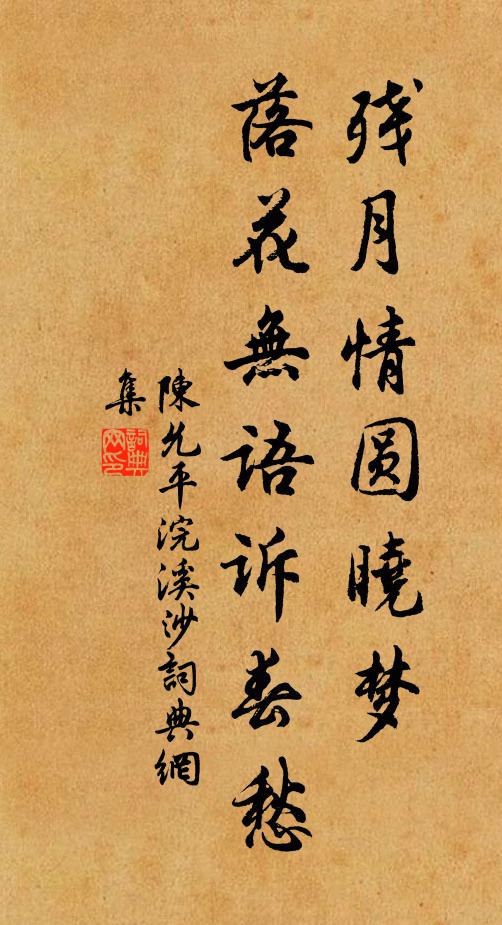 残月情圆曉梦
落花無語訴春愁
陳允平浣溪沙詞典網
集
詞典网印